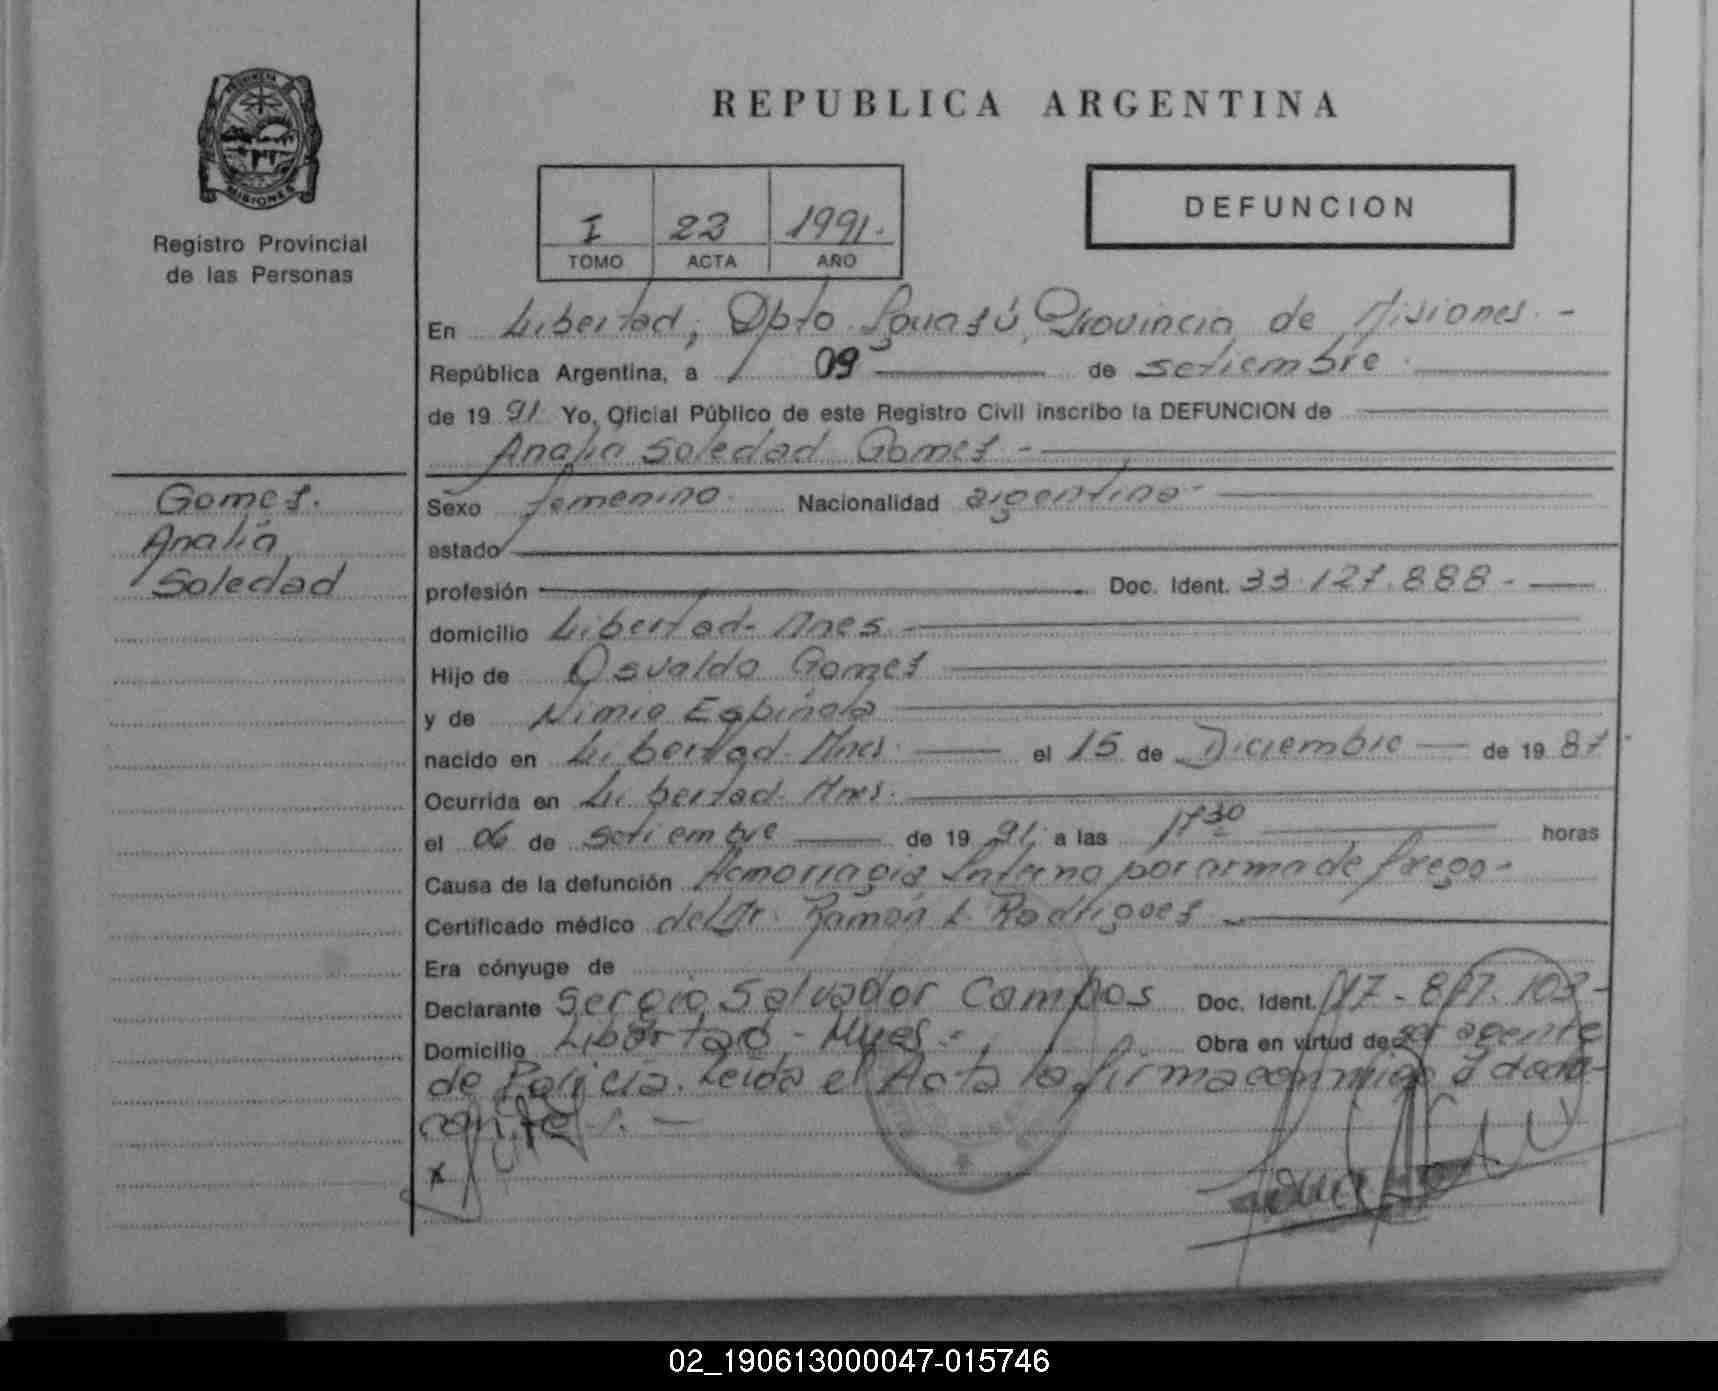 PROVINCIA DE
MISIONES
Registro Provincial
de las Personas
REPUBLICA ARGENTINA
I 23 1991.
TOMO ACTA AÑO
DEFUNCION
En Libertad, Dpto. Iguazú, Provincia de Misiones. -
República Argentina, a 09 de setiembre.
de 19 91 Yo, Oficial Público de este Registro Civil inscribo la DEFUNCION de
Analia Soledad Gomez -
Gomez.
Analia
Soledad
Sexo femenino. Nacionalidad argentina-
estado
profesión Doc. Ident. 33.127.888 -
domicilio Libertad- Mnes. -
Hijo de Osvaldo Gomez
y de Nimia Espinola
nacido en Libertad- Mnes. el 15 de Diciembre de 19 87.
Ocurrida en Libertad- Mnes.
el 06 de setiembre de 19 91, a las 17 30 horas
Causa de la defunción Hemorragia Interna por arma de fuego -
Certificado médico del Dr. Ramón L. Rodriguez
Era cónyuge de
Declarante Sergio Salvador Campos Doc. Ident. 17-817.102-
Domicilio Libertad - Mnes - Obra en virtud de ser agente
de Policia. Leida el Acta la firma conmigo el decla-
x
02_190613000047-015746